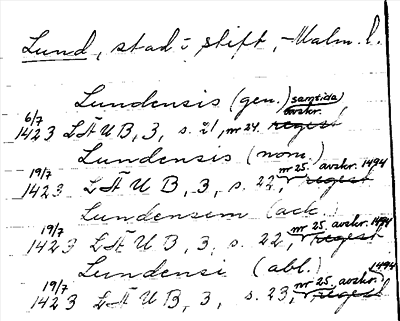 Lund, stad i stift, Malm. l.
Lundensis (gen.) samtida avskr.
6/7 1423 LÄUB, 3, s. 21, nr 24 regest
Lundensis (nom.)
19/7 1423 LÄUB, 3, s. 22, nr 25. avskr. 1494 regest
Lundensem (ack.)
19/7 1423 LÄUB, 3, s. 22, nr 25. avskr. 1494 regest
Lundensi (abl.) 1494
19/7 1423 LÄUB, 3, s. 23, nr 25. avskr. regest